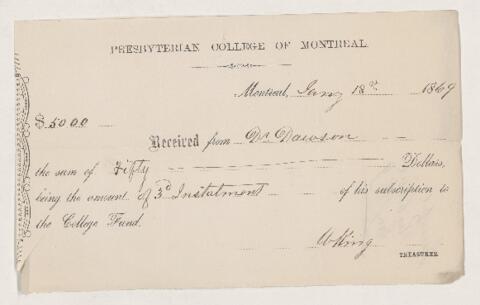 PRESBYTERIAN COLLEGE OF MONTREAL.
Montreal, Jany 18th 1869
$ 50 00
Received from Dr Dawson
the sum of Fifty Dollars,
being the amount of 3d Instalment of his subscription to
the College Fund.
W King
TREASURER